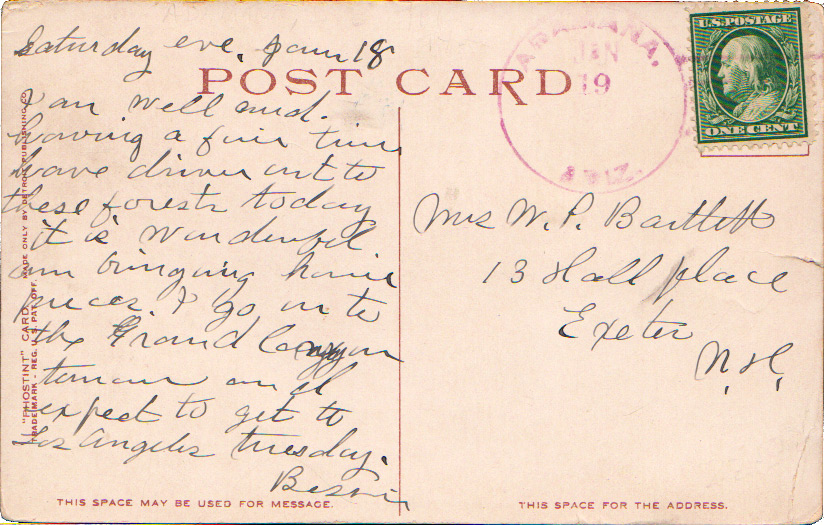 Saturday eve, Jan 18
POST CARD
I am well and
having a fair time
have driven out to
these forests today
it is wonderful
am bringing home
pieces. I go on to
the Grand Canyon
expect to get to
Los Angeles Tuesday.
THIS SPACE MAY BE USED FOR MESSAGE.
"PHOSTINT" CARD. MADE ONLY BY DETROIT PUBLISHING CO.
TRADE MARK - REG. U.S. PAT. OFF.
ADAMANA,
JAN
19
ARIZ.
U.S. POSTAGE
ONE CENT
Mrs W. P. Bartlett
13 Hall place
Exeter
N.H.
THIS SPACE FOR THE ADDRESS.